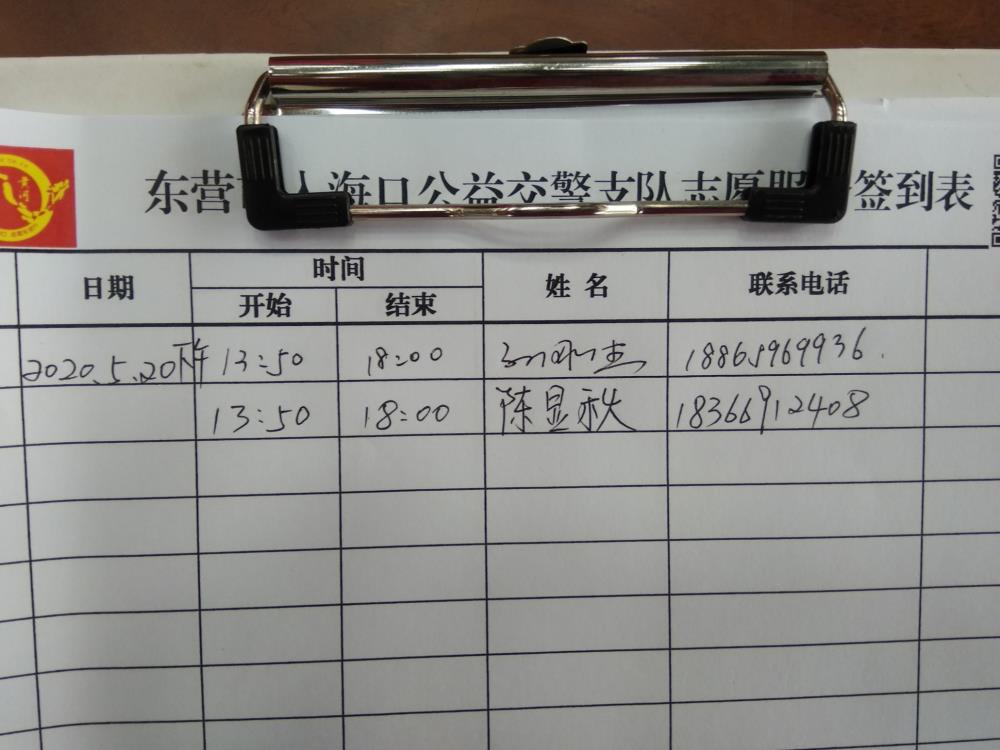 东营 人海口公益交警支队志愿服 签到表
日期 时间 姓名 联系电话
开始 结束
2020.5.20下午 13:50 18:00 18865969936.
13:50 18:00 陈显秋 18366912408